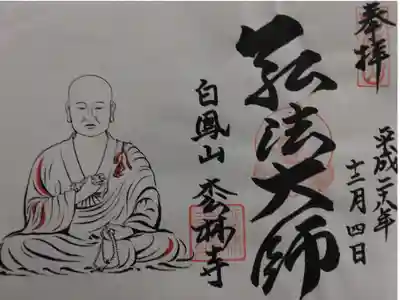 奉拝
平成二八年
十二月四日
弘法大師
白鳳山